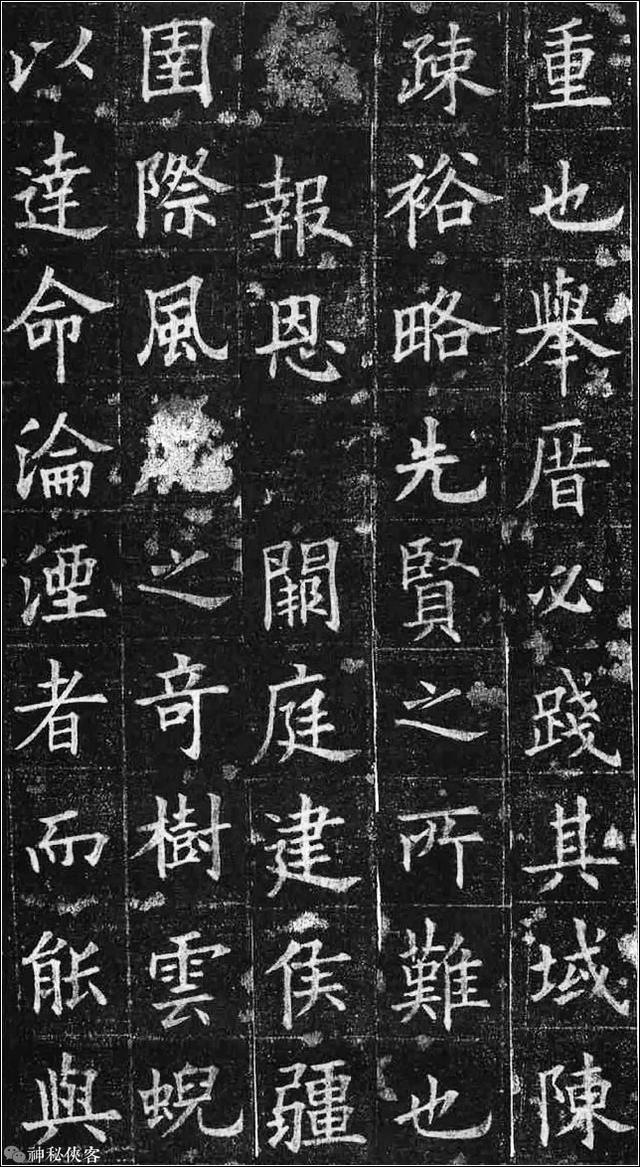 重也舉厝必踐其域陳
疎裕略先賢之所難也
報恩 闕庭建侯疆
圉際風之竒樹雲蜺
以達命淪湮者而能與
神秘侠客